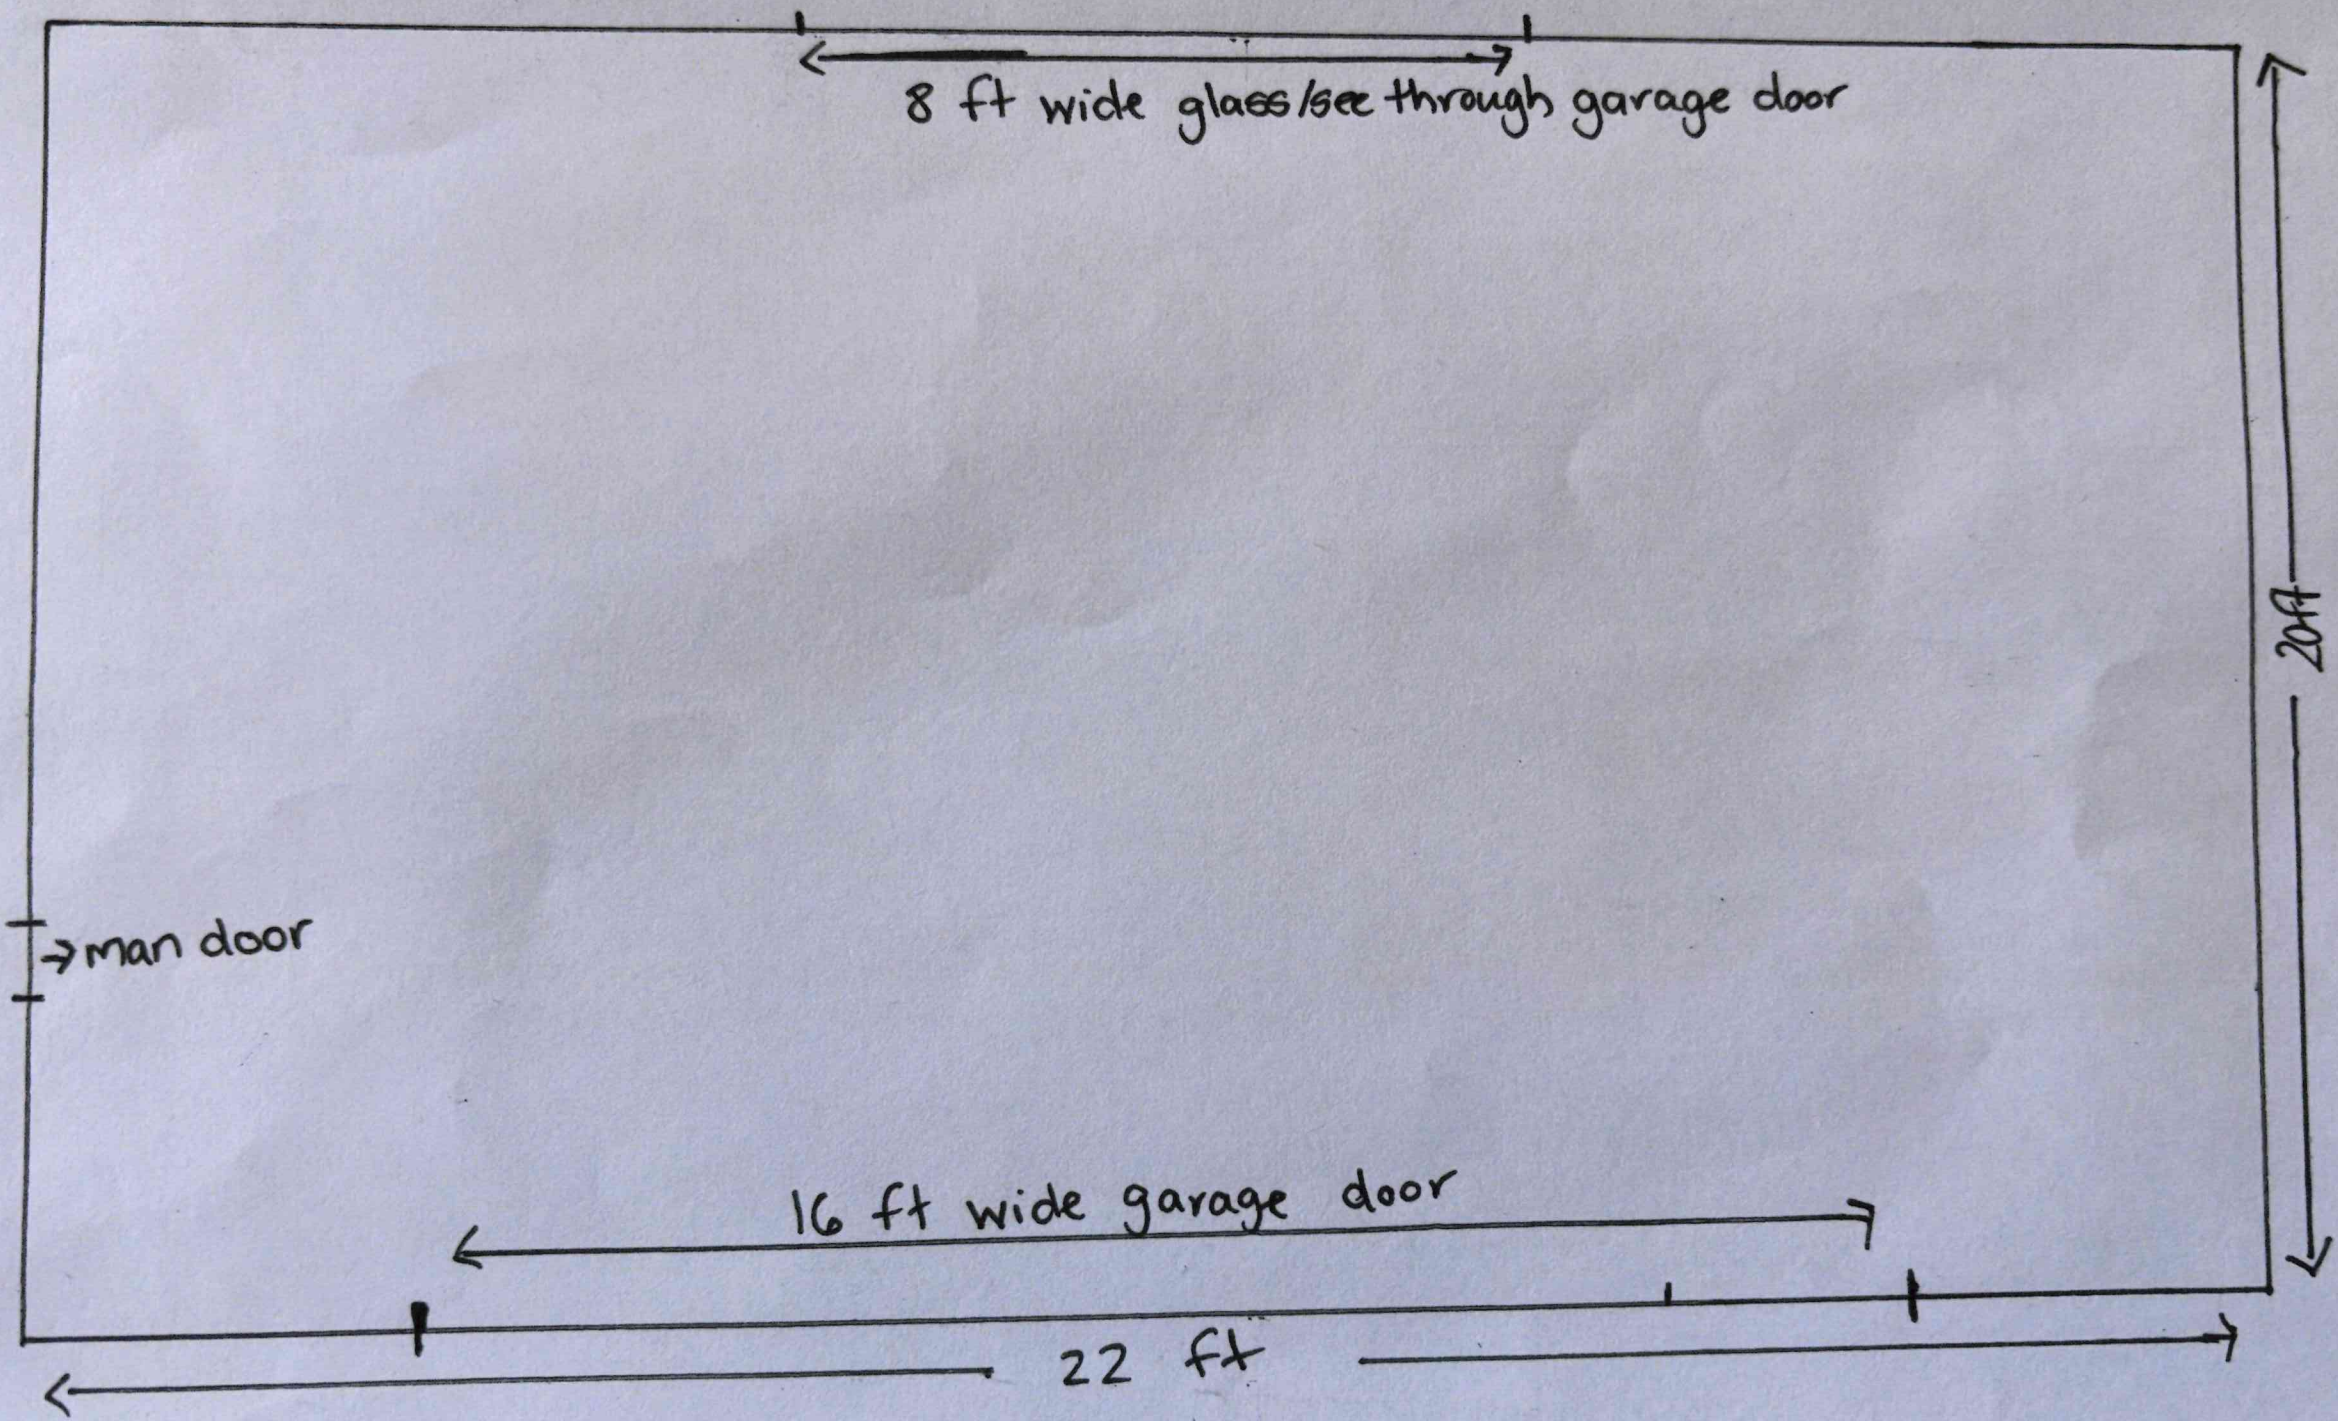 8 ft wide glass/see through garage door
20ft
→man door
16 ft wide garage door
22 ft